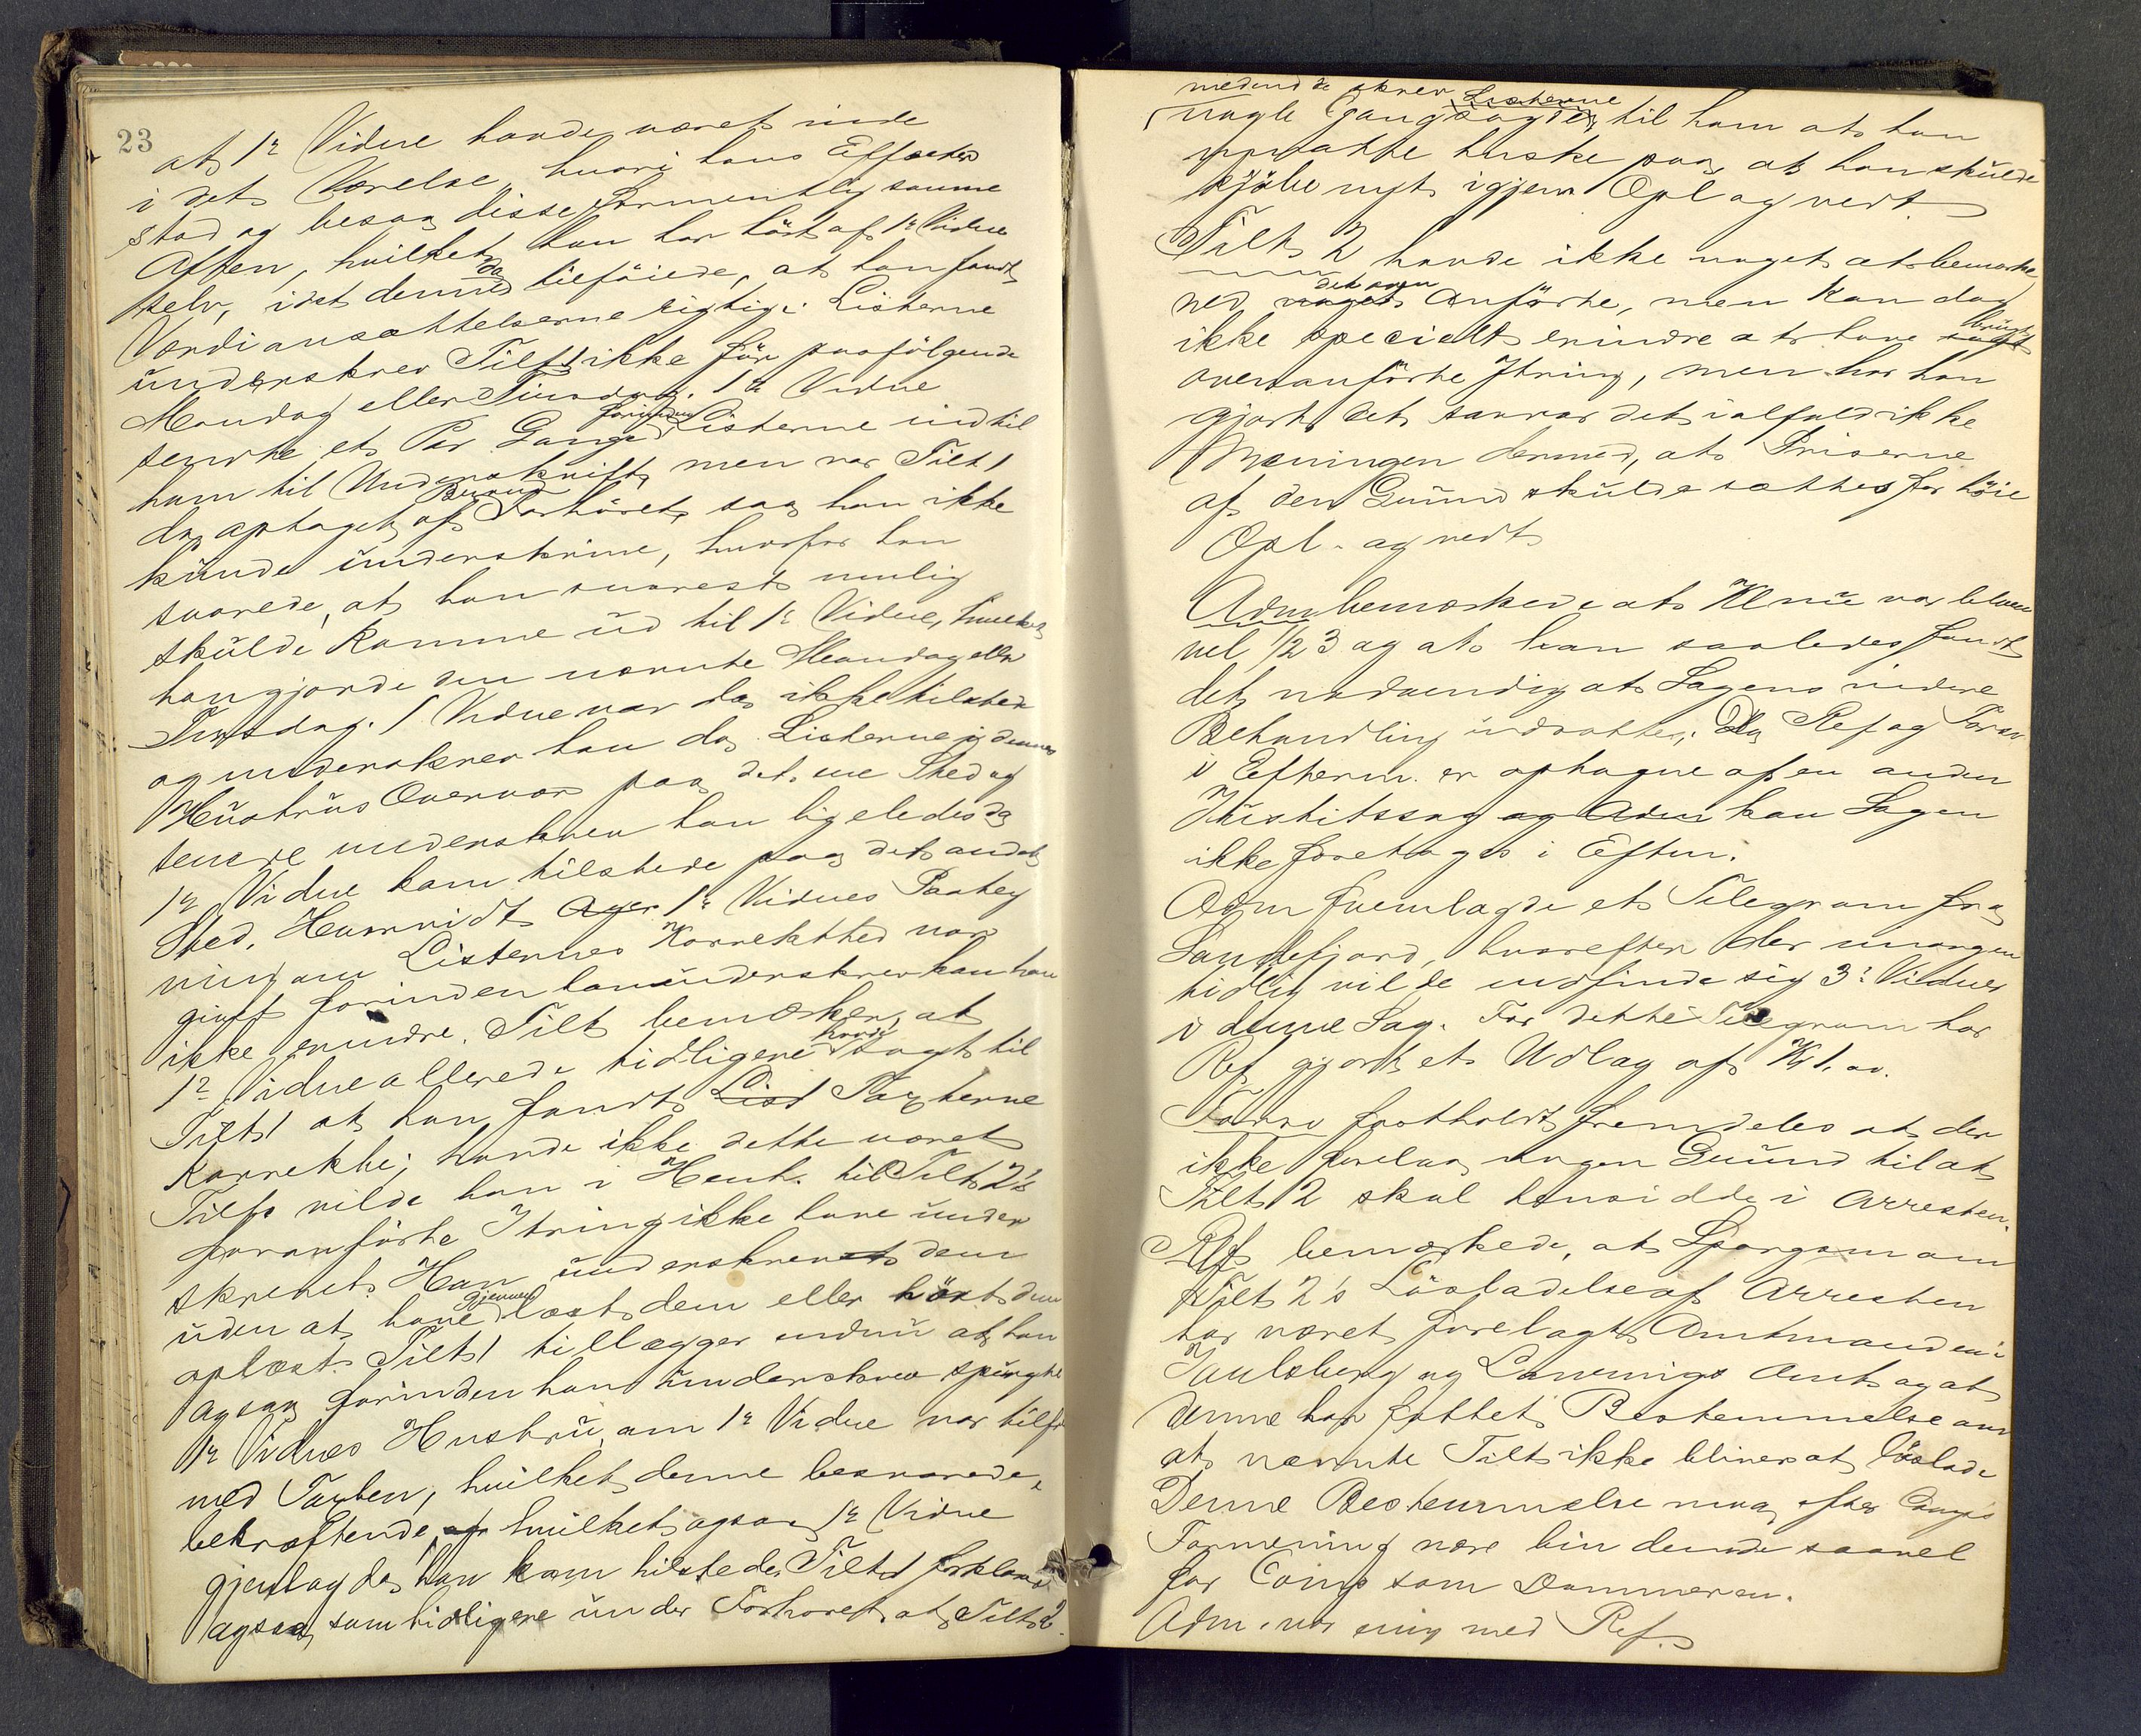 23
at 1ste Vidne havde været inde
i det Værelse, hvori hans Effecter
stod og besaa disse formentlig samme
Aften, hvilket han har hört af 1ste Vidne
selv, idet denne da tilföiede, at han fandt
Værdiansættelserne rigtig. Listerne
underskrev Tilt 1 ikke för paafölgende
Mandag eller Tirsdag. 1ste Vidne
sendte et Par Gange forinden Listerne ind til
ham til Underskrift, men var Tilt 1
da optaget af Forhöret, saa han ikke
kunde underskrive, hvorfor han
svarede, at han snarest mulig
skulde komme ud til 1ste Vidne, hvilket
han gjorde den nævnte Mandag eller
Tirsdag. 1 Vidne var da ikke tilstede
og underskrev han da Listerne i dennes
Hustrus Overvær paa det ene Sted og
senere underskrev han ligeledes da
1ste Vidne kom tilstede paa det andet
Sted. Hvorvidt 1ste Vidnes Paateg
ning om Listernes Korrekthed var
givet forinden han underskrev kan han
ikke erindre. Tilt bemærker, at
1ste Vidne allerede tidligere havde sagt til
Tilt 1 at han fandt List Taxterne
korrekte; havde ikke dette været
Tilfs vilde han i Henh. til Tilt 2's
foranförte Ytring ikke have under
skrevet. Han underskrev dem
uden at have gjennem læst dem eller hört dem
oplæst. Tilt 1 tillægger endnu at han
ogsaa forinden han underskrev spurgte
1ste Vidnes Hustru, om 1ste Vidne var tilfr
med Taxten, hvilket denne besvarede
bekræftende, hvilket ogsaa 1ste Vidne
gjentog da han kom tilstede. Tilt 1 forklarer
ogsaa, som tidligere under Forhöret, at Tilt 2
medens de skrev Listerne
nogle Gang sagde til ham at han
maatte huske paa, at han skulde
kjöbe nyt igjen Opl og vedt
Tilt 2 havde ikke noget at bemærke
ved det ovenn Anförte, men kan dog
ikke specielt erindre at have brugt
ovenanförte Ytring, men har han
gjort det saa var det ialfald ikke
Meningen dermed, at Priserne
af den Grund skulde sættes for höie
Opl. og vedt
Adm bemærkede at Kl nu var bleven
vel 1/2 3 og at han saaledes fandt
det nödvendig at Sagens videre
Behandling udsattes. Da Ref og Forsv
i Efterm. er optagne af en anden
Justitssag og Adm kan Sagen
ikke foretages i Eftm.
Adm fremlagde et Telegram fra
Sandefjord, hvorefter der imorgen
tidlig vilde indfinde sig 3de Vidner
i denne Sag. For dette Telegram har
Ref gjort et Udlag af Kr 1,00.
Forsv fastholdt fremdeles at der
ikke forelaa nogen Grund til at
Tilt 2 skal hensidde i Arresten.
Ref bemærkede, at Spörgsm om
Tilt 2's Lösladelse af Arresten
har været forelagt Amtmanden i
Jarlsberg og Laurvigs Amt og at
denne har fattet Bestemmelse om
at nævnte Tilt ikke bliver at löslade
Denne Bestemmelse maa efter Comps
Formening være bindende saavel
for Comp som Dommeren.
Adm. var enig med Ref.